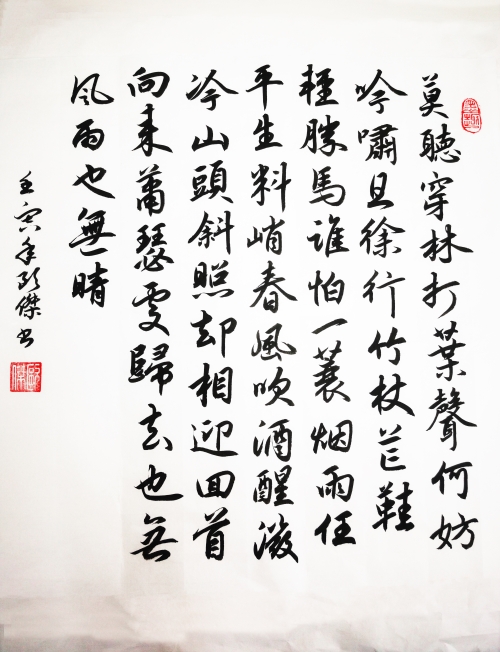 莫聽穿林打葉聲何妨
吟嘯且徐行竹杖芒鞋
輕勝馬誰怕一蓑烟雨任
平生料峭春風吹酒醒微
冷山頭斜照却相迎回首
向來蕭瑟處歸去也無
風雨也無晴
壬寅年傑书